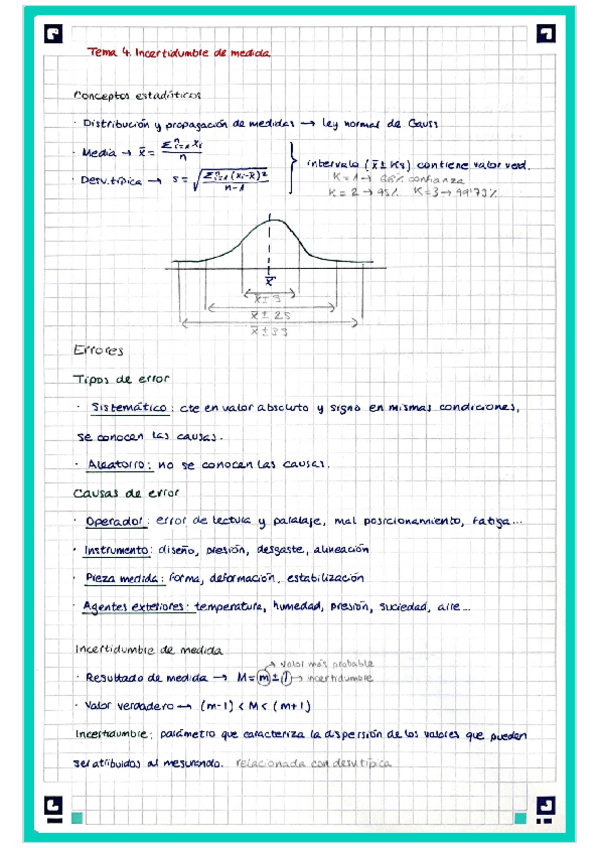 Tema 4. Incertidumbre de medida
Conceptos estadísticos
· Distribución y propagación de medidas → ley normal de Gauss
· Media → x̄ = Σⁿᵢ₌₁ xᵢ / n
· Desv. típica → s = √(Σⁿᵢ₌₁ (xᵢ - x̄)² / n-1)
intervalo (x̄ ± Ks) contiene valor verd.
K = 1 → 68% confianza
K = 2 → 95% K = 3 → 99'73%
x̄
x̄ ± s
x̄ ± 2s
x̄ ± 3s
Errores
Tipos de error
· Sistemático: cte en valor absoluto y signo en mismas condiciones,
se conocen las causas.
· Aleatorio: no se conocen las causas.
Causas de error
· Operador: error de lectura y paralaje, mal posicionamiento, fatiga...
· Instrumento: diseño, presión, desgaste, alineación
· Pieza medida: forma, deformación, estabilización
· Agentes exteriores: temperatura, humedad, presión, suciedad, aire...
Incertidumbre de medida
→ valor más probable
· Resultado de medida → M = m ± I → incertidumbre
· Valor verdadero → (m-I) < M < (m+I)
Incertidumbre: parámetro que caracteriza la dispersión de los valores que pueden
ser atribuidos al mesurando. relacionada con desv. típica